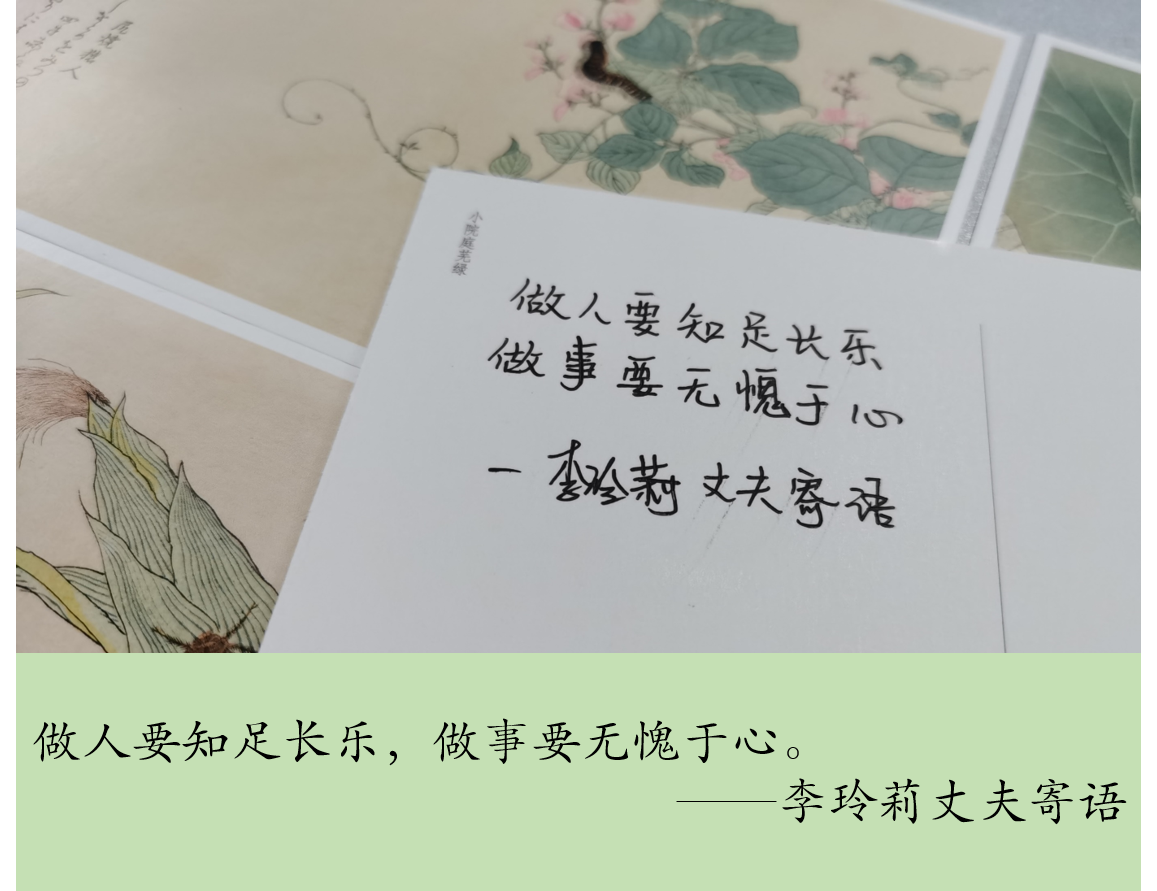 小院庭芜绿
做人要知足长乐
做事要无愧于心
一李玲莉丈夫寄语
做人要知足长乐，做事要无愧于心。
——李玲莉丈夫寄语